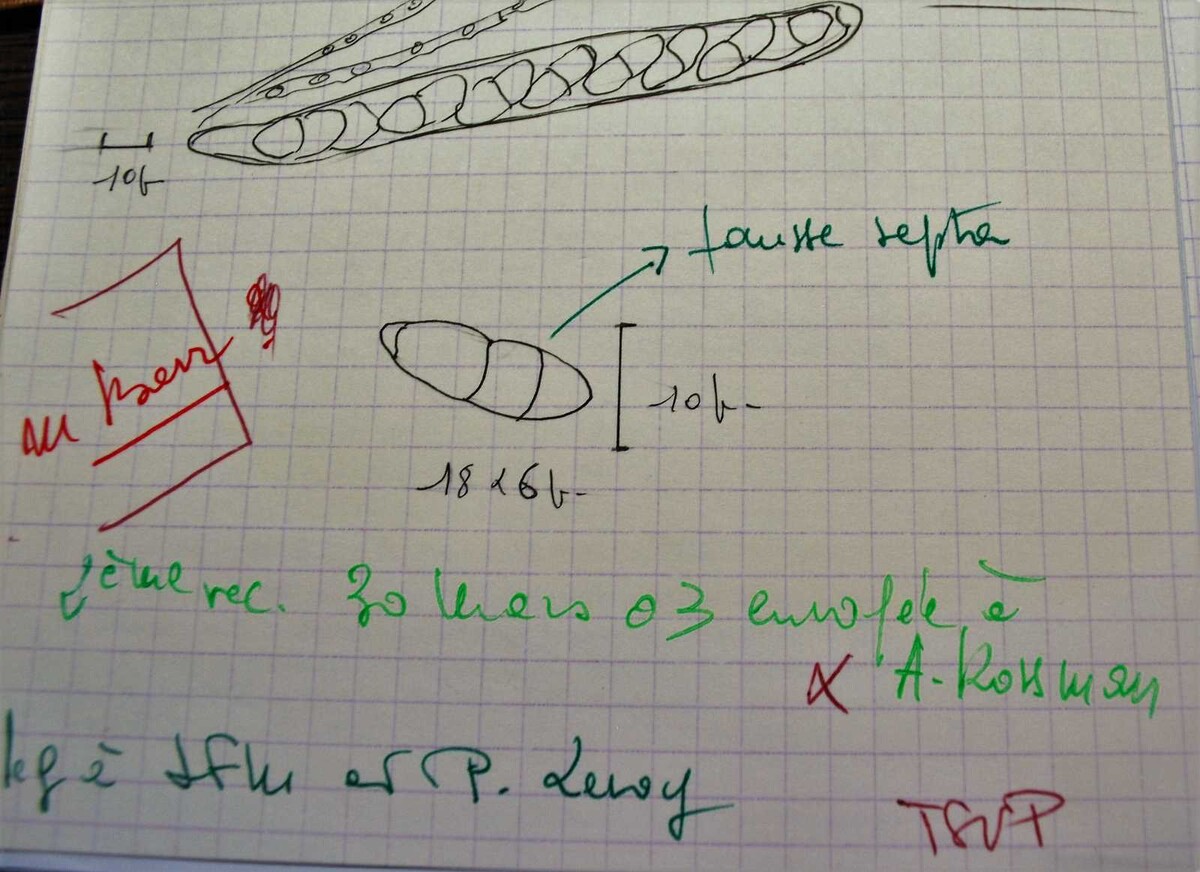 10µ
fausse septa
10µ
au
18 x 6 µ
2ème rec. 30 Mars 03 envoyée à
x A. Rossman
leg à JFM et P. Leroy
TSVP